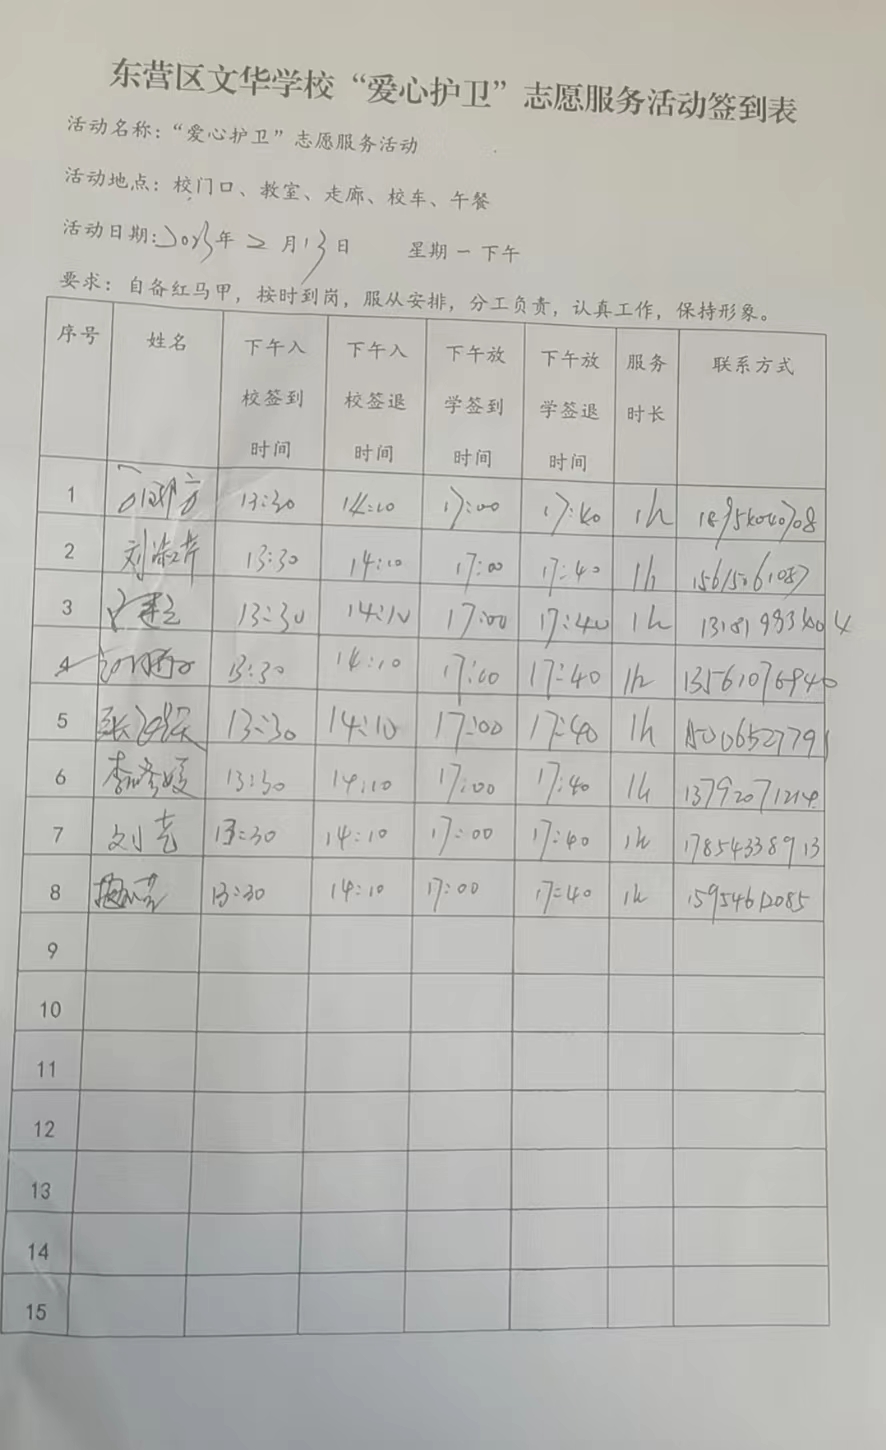 东营区文华学校“爱心护卫”志愿服务活动签到表
活动名称：“爱心护卫”志愿服务活动
活动地点：校门口、教室、走廊、校车、午餐
活动日期：2023年 2 月 13 日 星期 一 下午
要求：自备红马甲，按时到岗，服从安排，分工负责，认真工作，保持形象。
序号 姓名 下午入校签到时间 下午入校签退时间 下午放学签到时间 下午放学签退时间 服务时长 联系方式
1 13:30 14:10 17:00 17:40 1h
2 刘淑芹 13:30 14:10 17:00 17:40 1h 15615061087
3 13:30 14:10 17:00 17:40 1h
4 13:30 14:10 17:00 17:40 1h 13561076940
5 13:30 14:10 17:00 17:40 1h
6 13:30 14:10 17:00 17:40 1h 13792071214
7 13:30 14:10 17:00 17:40 1h 17854338913
8 13:30 14:10 17:00 17:40 1h 15954612085
9
10
11
12
13
14
15